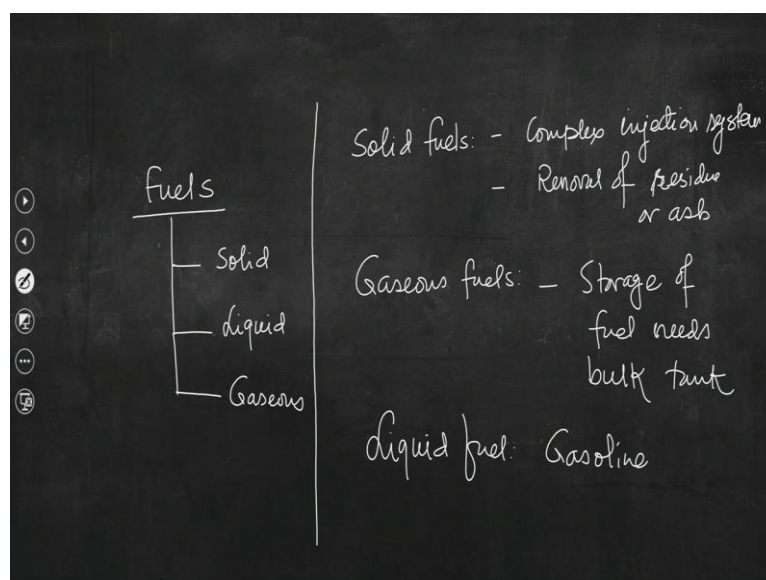 Fuels
Solid
Liquid
Gaseous
Solid fuels: - Complex injection system
- Removal of residue
or ash
Gaseous fuels: - Storage of
fuel needs
bulk tank
Liquid fuel: Gasoline